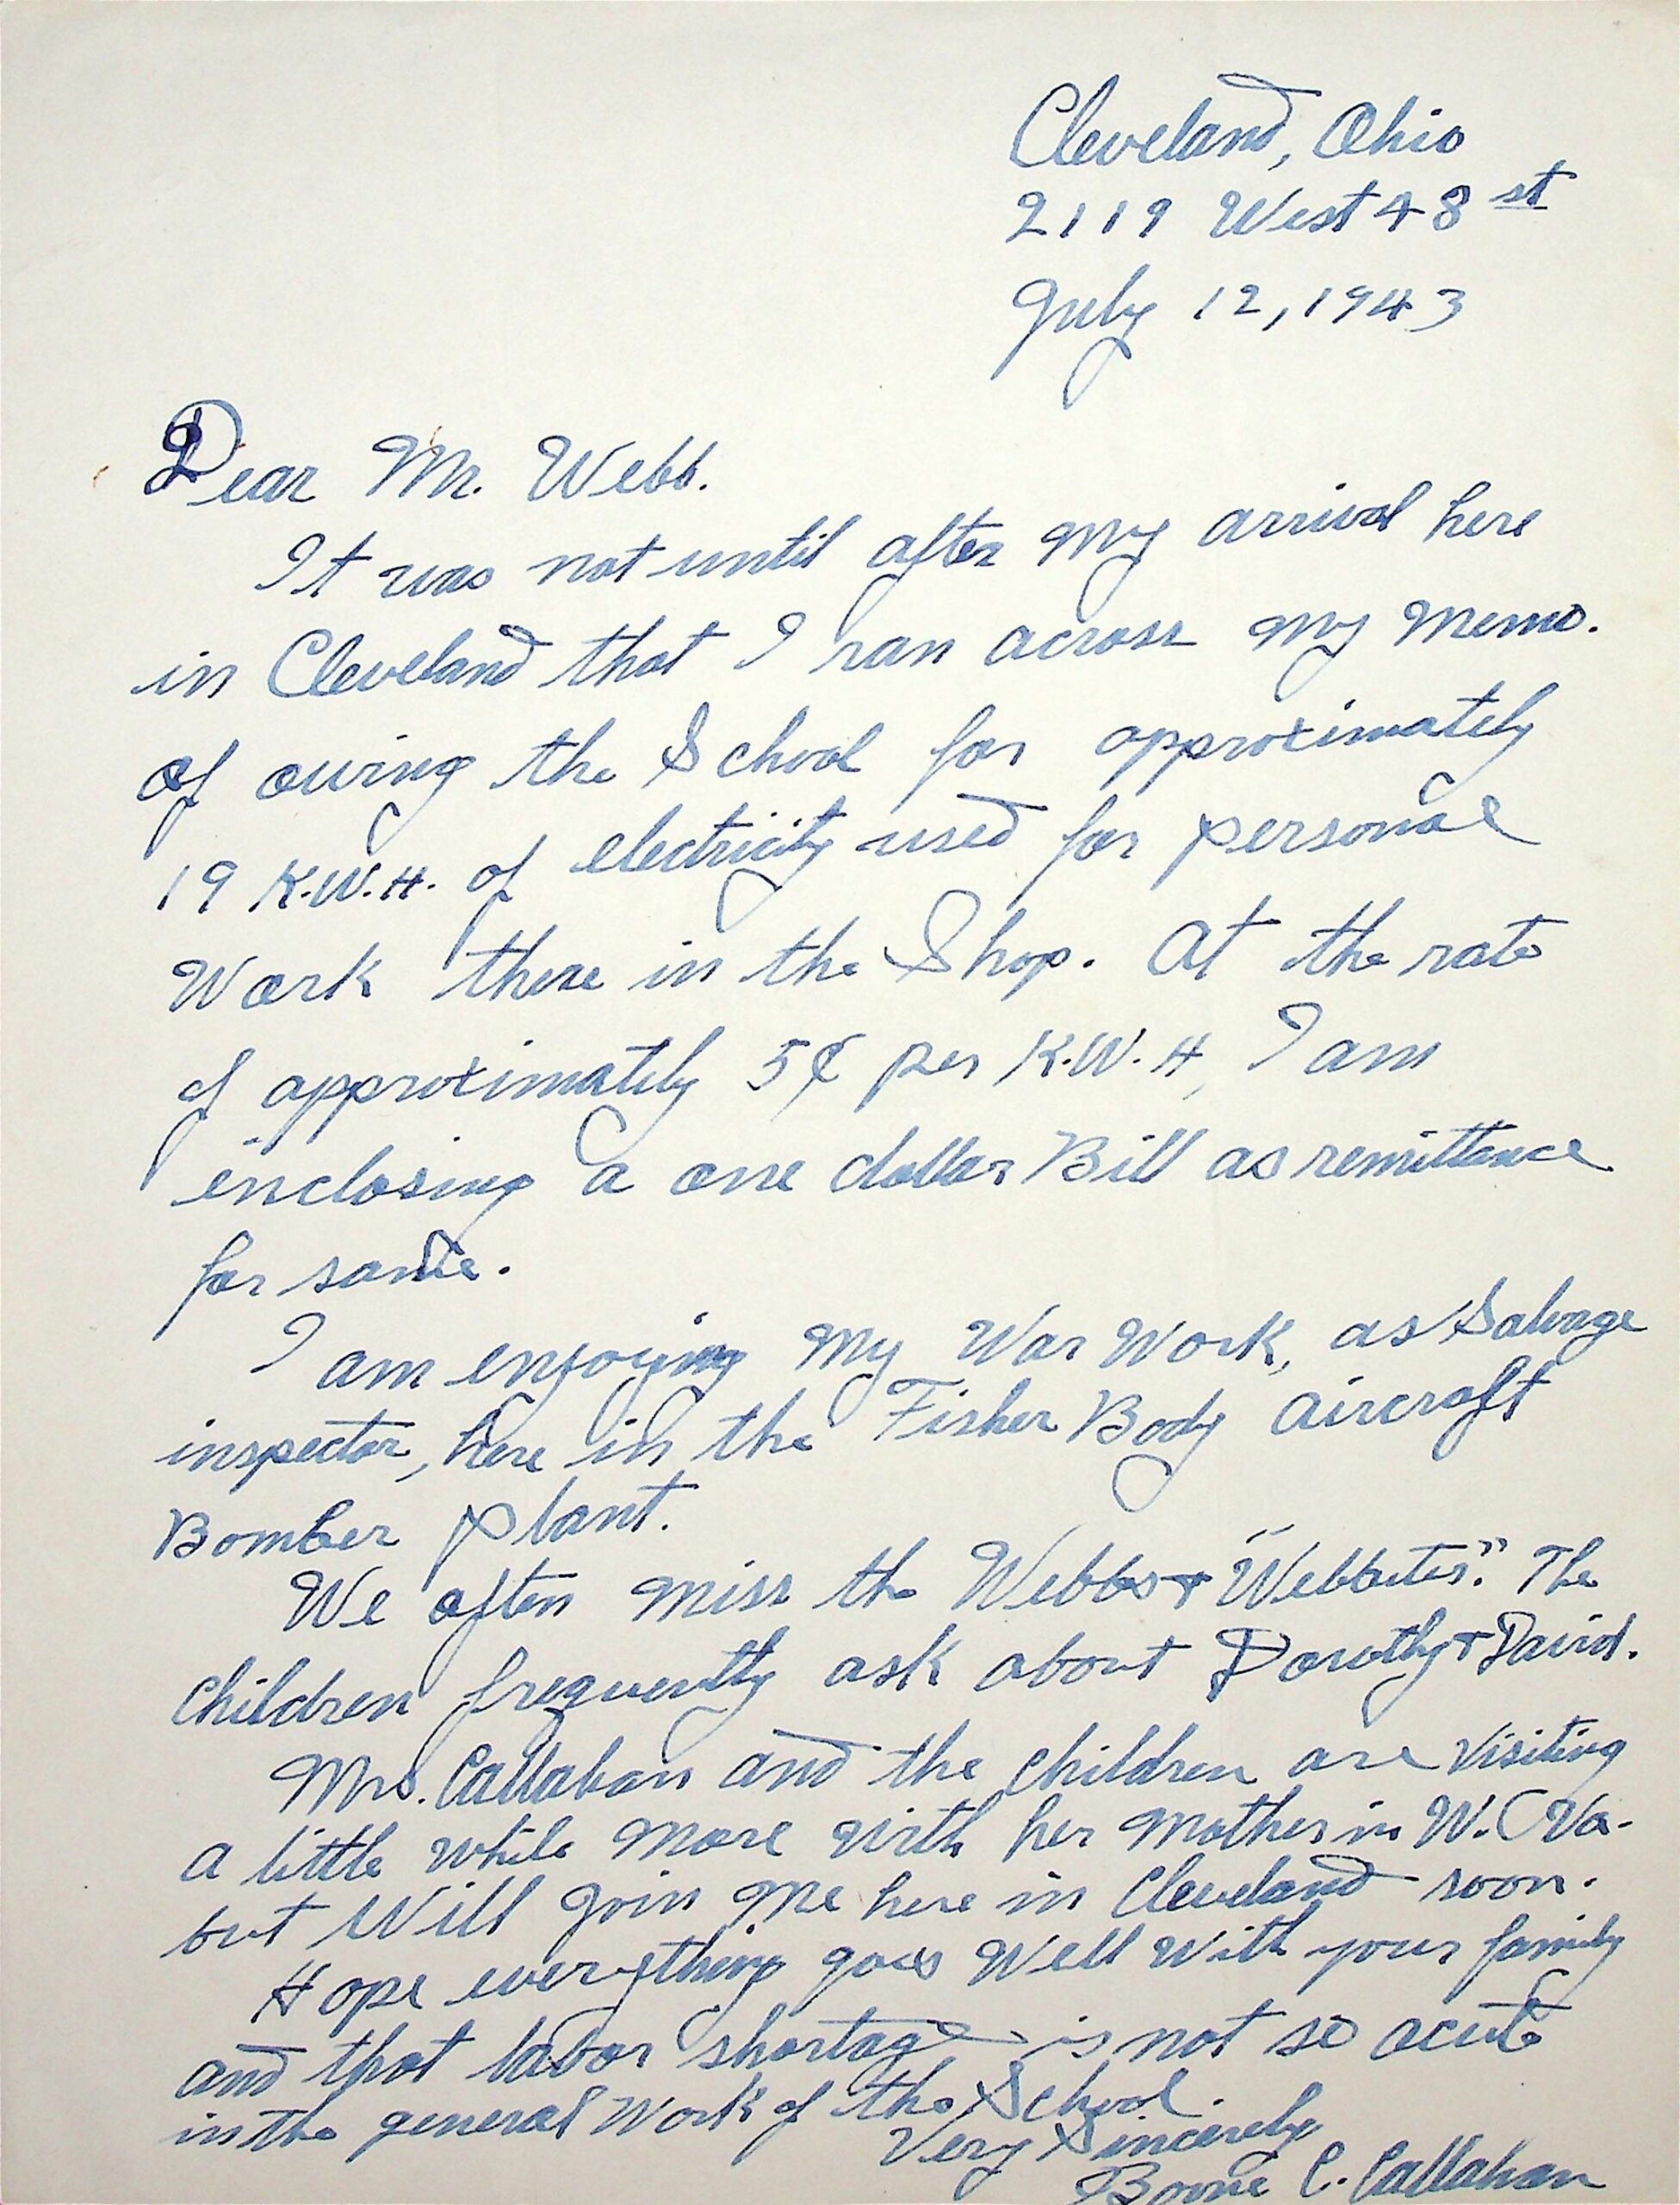 Cleveland, Ohio
2119 West 48 st
July 12, 1943
Dear Mr. Webb.
It was not until after my arrival here
in Cleveland that I ran across my memo.
of owing the School for approximately
19 K.W.H. of electricity used for personal
Work there in the Shop. At the rate
of approximately 5¢ per K.W.H, I am
enclosing a one dollar Bill as remittance
for same.
I am enjoying my War Work, as Salvage
inspector, here in the Fisher Body aircraft
Bomber plant.
We often miss the Webbs + "Webbites". The
Children frequently ask about Dorothy + David.
Mrs. Callahan and the children are visiting
a little while more with her mother in W. Va.
but Will join me here in Cleveland soon.
Hope everything goes Well With your family
and that labor shortage is not so acute
in the general Work of the School.
Very Sincerely
Boone C. Callahan